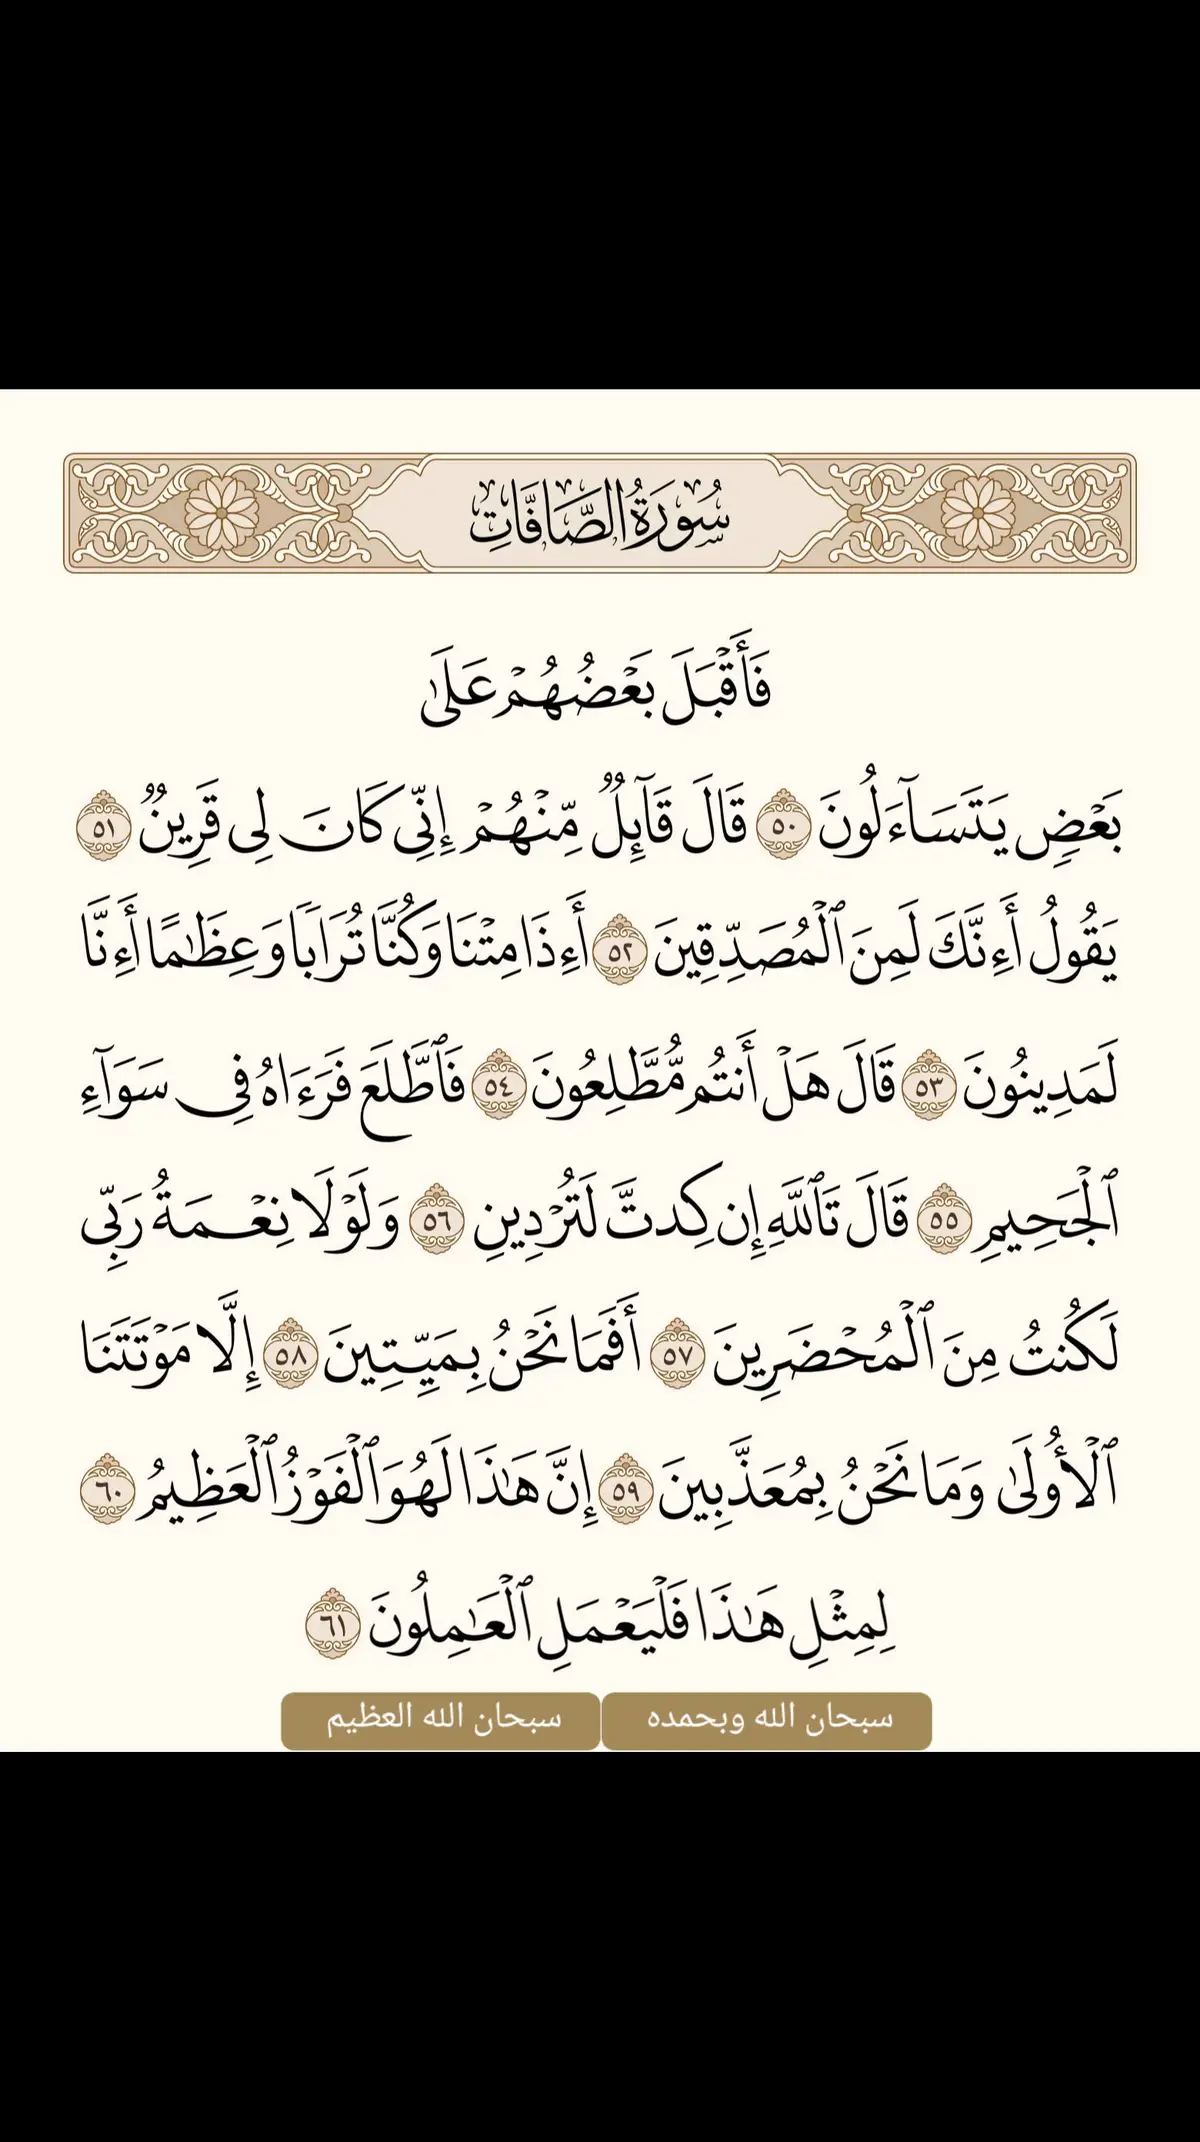 سُورَةُ الصَّافَّاتِ
فَأَقۡبَلَ بَعۡضُهُمۡ عَلَىٰ
بَعۡضٖ يَتَسَآءَلُونَ ٥٠ قَالَ قَآئِلٞ مِّنۡهُمۡ إِنِّي كَانَ لِي قَرِينٞ ٥١
يَقُولُ أَءِنَّكَ لَمِنَ ٱلۡمُصَدِّقِينَ ٥٢ أَءِذَا مِتۡنَا وَكُنَّا تُرَابٗا وَعِظَٰمًا أَءِنَّا
لَمَدِينُونَ ٥٣ قَالَ هَلۡ أَنتُم مُّطَّلِعُونَ ٥٤ فَٱطَّلَعَ فَرَءَاهُ فِي سَوَآءِ
ٱلۡجَحِيمِ ٥٥ قَالَ تَٱللَّهِ إِن كِدتَّ لَتُرۡدِينِ ٥٦ وَلَوۡلَا نِعۡمَةُ رَبِّي
لَكُنتُ مِنَ ٱلۡمُحۡضَرِينَ ٥٧ أَفَمَا نَحۡنُ بِمَيِّتِينَ ٥٨ إِلَّا مَوۡتَتَنَا
ٱلۡأُولَىٰ وَمَا نَحۡنُ بِمُعَذَّبِينَ ٥٩ إِنَّ هَٰذَا لَهُوَ ٱلۡفَوۡزُ ٱلۡعَظِيمُ ٦٠
لِمِثۡلِ هَٰذَا فَلۡيَعۡمَلِ ٱلۡعَٰمِلُونَ ٦١
سبحان الله وبحمده سبحان الله العظيم